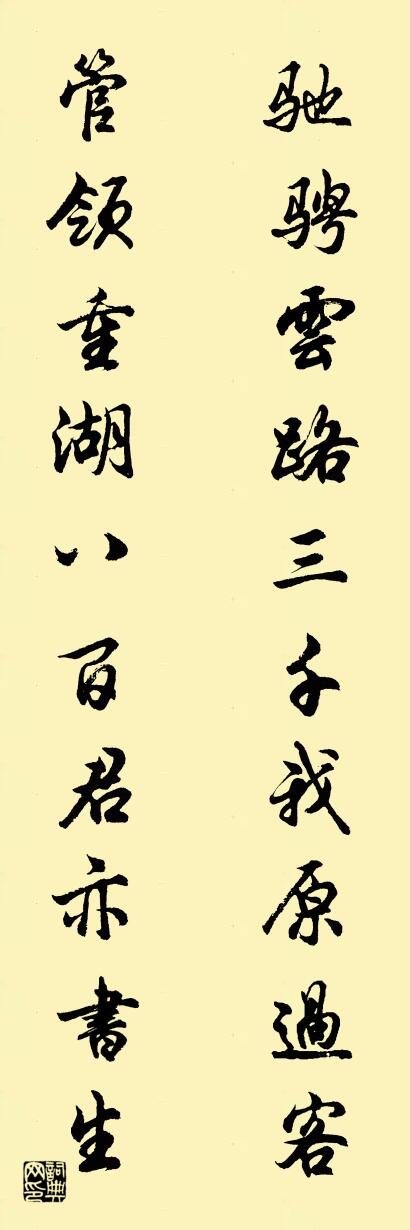 驰骋雲路三千我原過客
管领重湖八百君亦書生
詞典网印